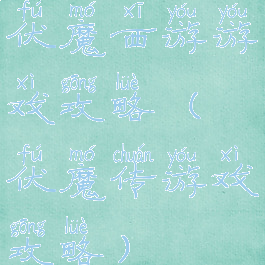 fú mó xī yóu yóu
伏魔西游游
xì gōng lüè
戏攻略（
fú mó chuán yóu xì
伏魔传游戏
gōng lüè
攻略）